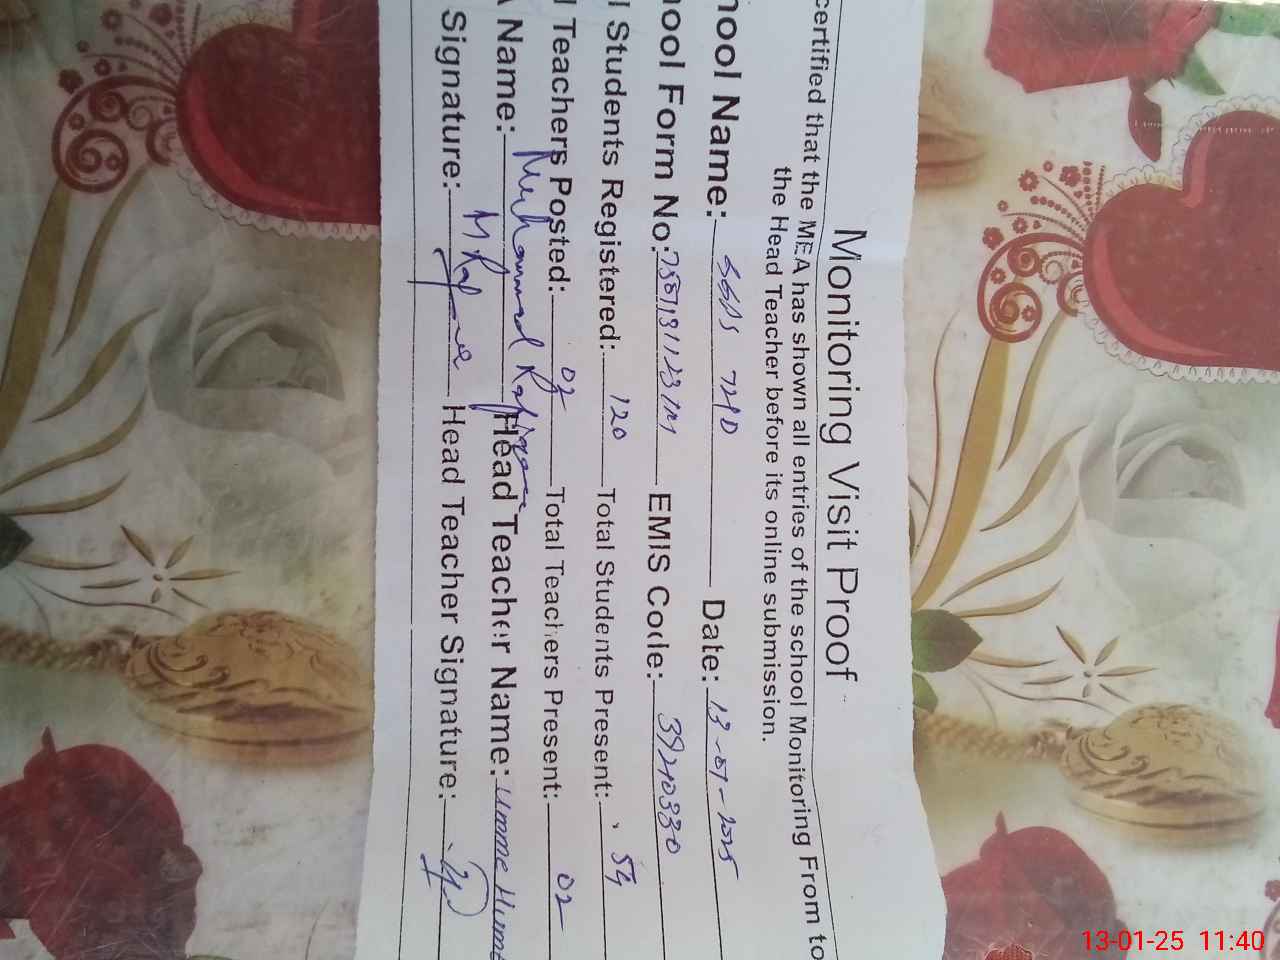 Monitoring Visit Proof
certified that the MEA has shown all entries of the school Monitoring From to
the Head Teacher before its online submission.
hool Name: GGPS 72/D Date: 13-01-2025
ool Form No: EMIS Code: 39210330
l Students Registered: 120 Total Students Present: 54
l Teachers Posted: 02 Total Teachers Present: 02
A Name: Muhammad Rafique Head Teacher Name: Umme
Signature: M Rafique Head Teacher Signature:
13-01-25 11:40